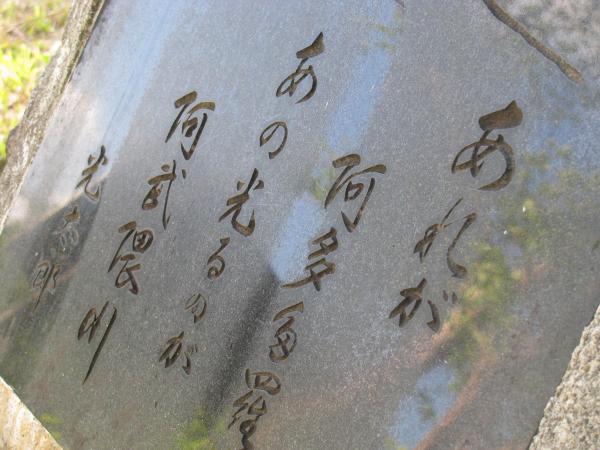 あれが
阿多多羅
あの光るのが
阿武隈川
光太郎